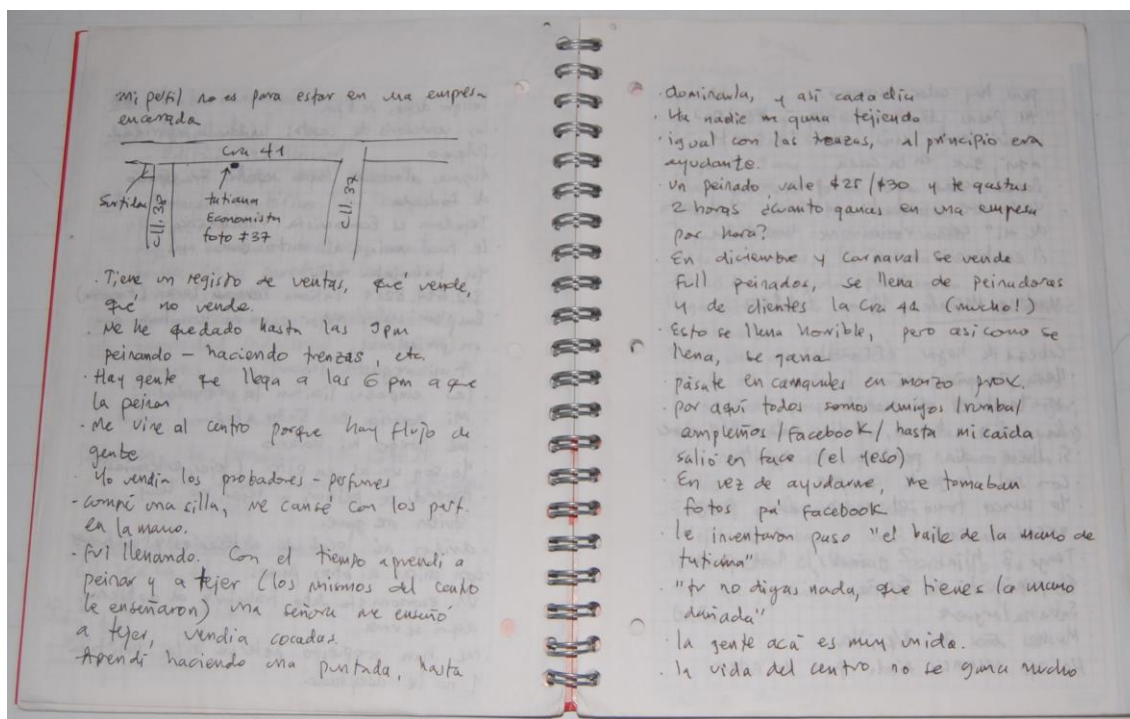 Mi perfil no es para estar en una empresa
encerrada
Cra 41
Surtilar
Cll. 38
tatiana
Economista
foto #37
Cll. 37
· Tiene un registro de ventas, qué vende,
qué no vende.
· Me he quedado hasta las 9pm
peinando – haciendo trenzas, etc.
· Hay gente que llega a las 6 pm a que
la peinen
· Me vine al centro porque hay flujo de
gente
· Yo vendía los probadores – perfumes
- compré una silla, me cansé con los perf.
en la mano.
· Fui llenando. Con el tiempo aprendí a
peinar y a tejer (los mismos del centro
le enseñaron) una señora me enseñó
a tejer, vendía cocadas.
· Aprendí haciendo una puntada, hasta
dominarla, y así cada día
· Ya nadie me gana tejiendo
· igual con las trenzas, al principio era
ayudante.
· Un peinado vale $25/$30 y te gastas
2 horas ¿cuánto ganas en una empresa
por hora?
· En diciembre y carnaval se vende
full peinados, se llena de peinadoras
y de clientes la Cra 41 (mucho!)
· Esto se llena horrible, pero así como se
llena, se gana
· pásate en carnavales en marzo prox.
· por aquí todos somos amigos /rumba/
/Facebook/ hasta mi caída
salió en face (el yeso)
· En vez de ayudarme, me tomaban
fotos pa' facebook
· le inventaron paso "el baile de la mano de
tatiana"
· "tu no digas nada, que tienes la mano
dañada"
· la gente acá es muy unida.
· la vida del centro no se gana mucho